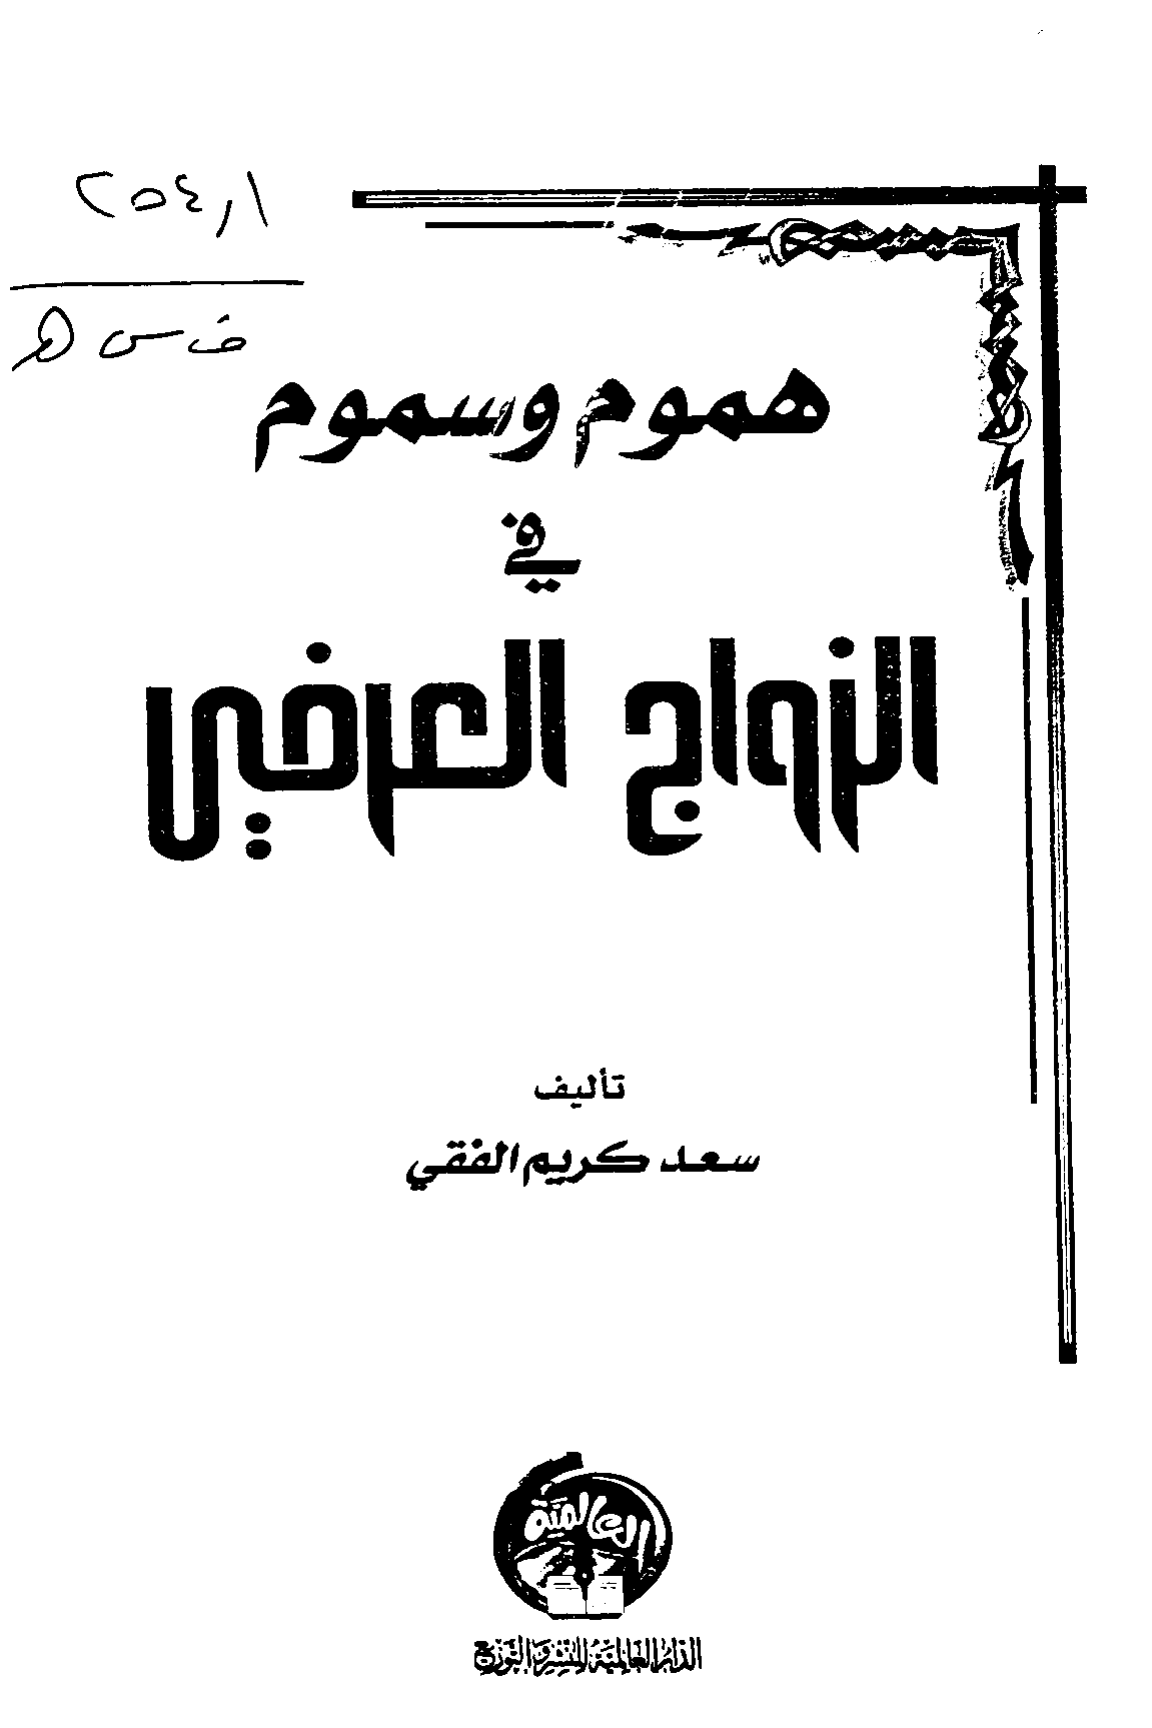 ٢٥٤,١
ف س ه
هموم وسموم
في
الزواج العرفي
تأليف
سعد كريم الفقي
العالمية
الدار العالمية للنشر والتوزيع